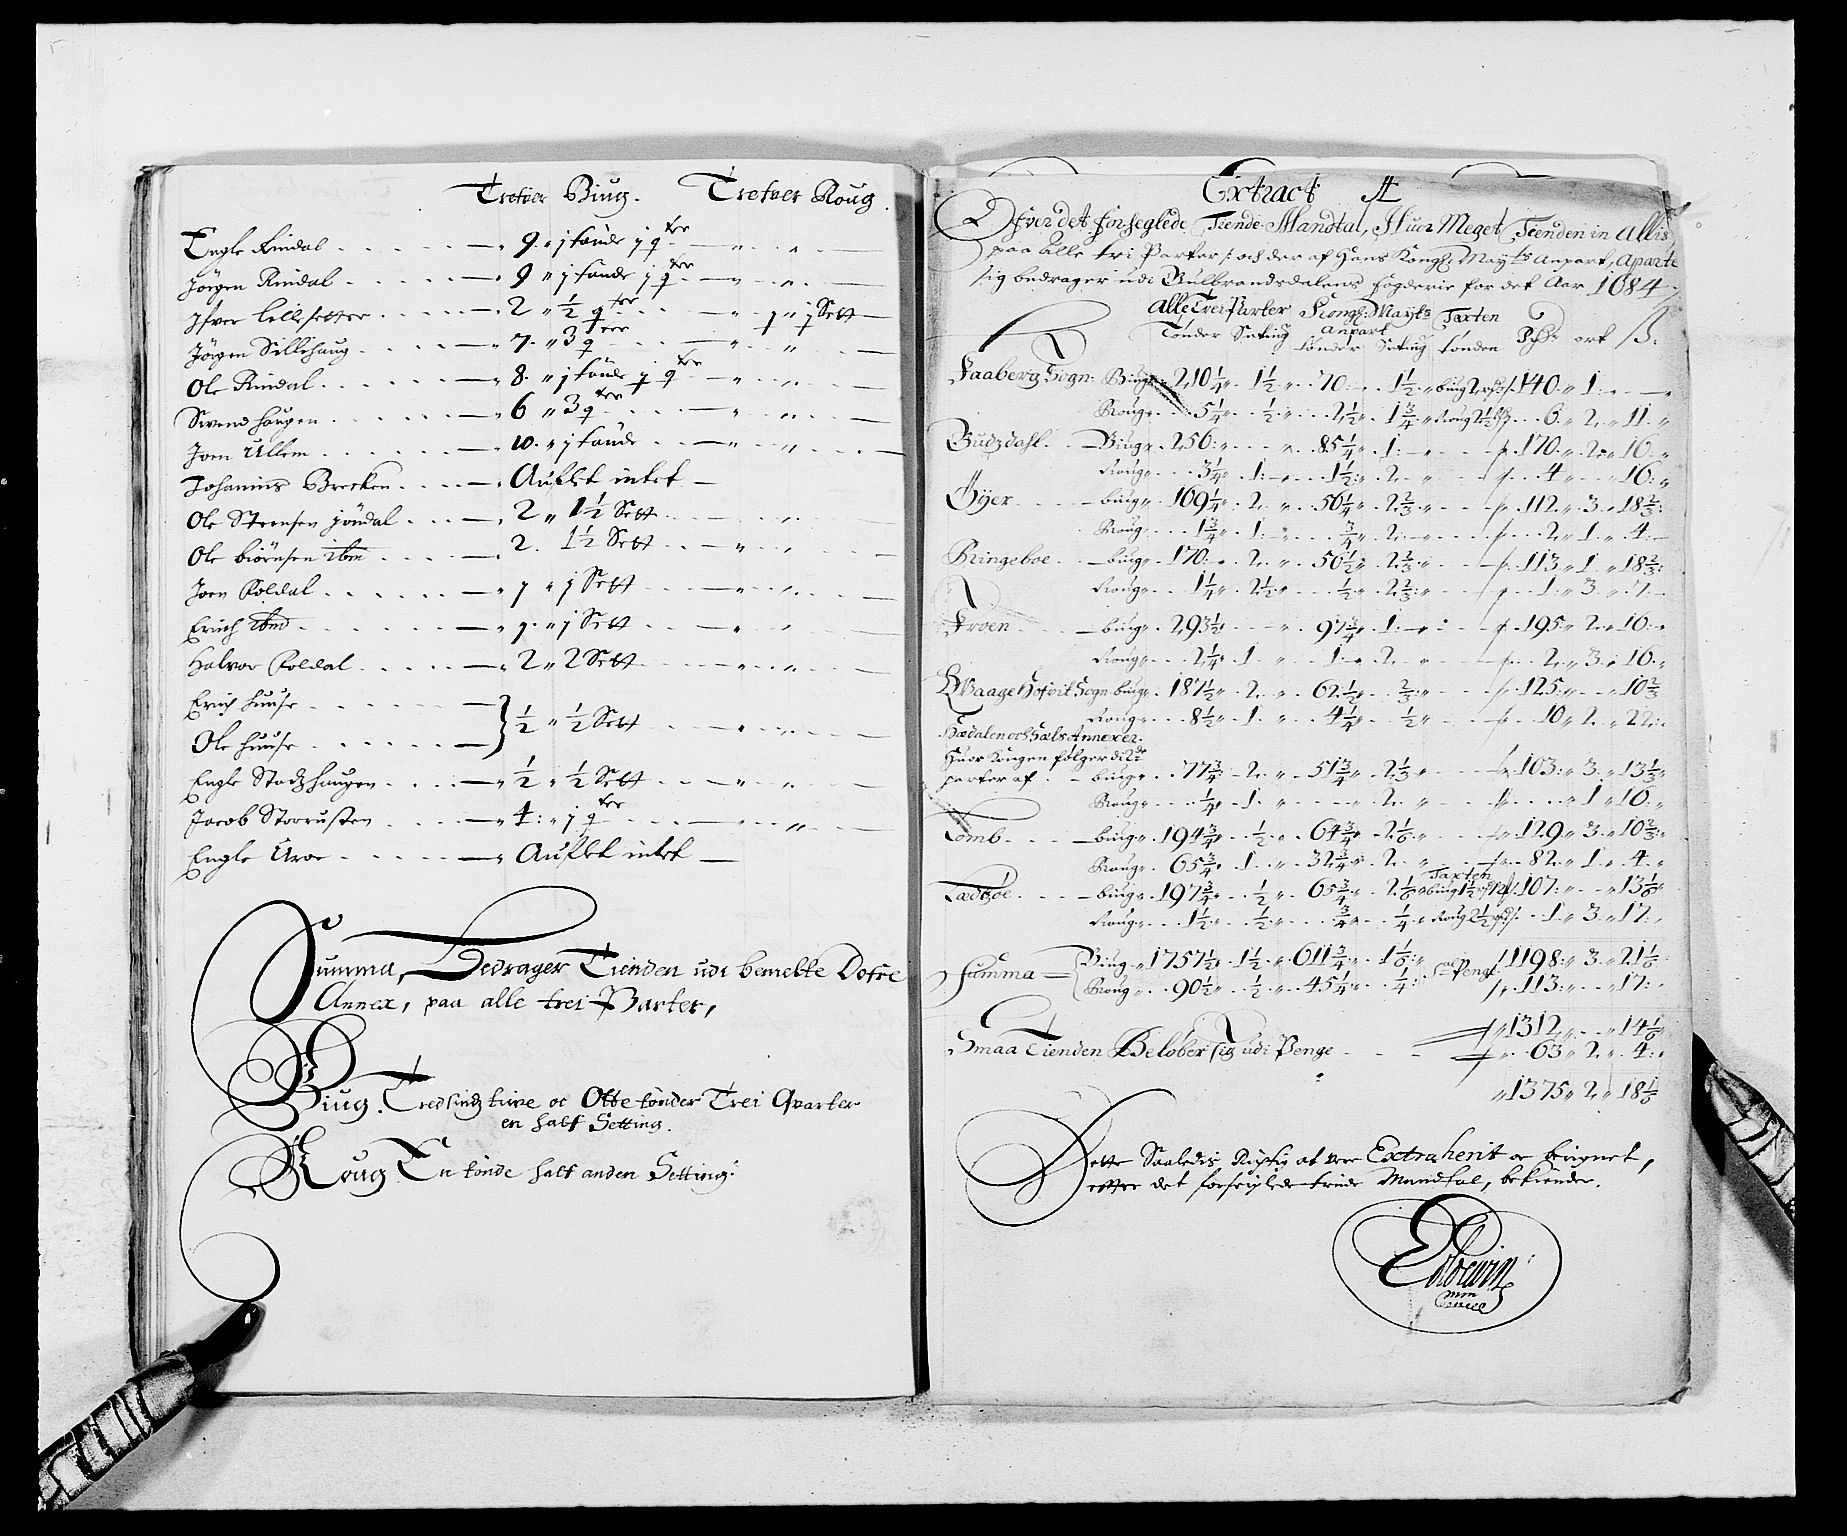 Trefver Biug. Trefver Roug.
Engle Rindal 9 " j tønde j q ter " "
Jørgen Rindal 9 " j tønde j q ter " "
Ifver Lillesetter 2 " ½ q ter " j " j Sett
Jørgen Sillehaug 7 " 3 q ter " "
Ole Rindal 8 " j tønde j q ter " "
Svend haugen 6 " 3 q ter " "
Joen Ullem 10 " j tønde " "
Johannis Brecken Auflet intet
Ole Steensen jøndal 2 " 1½ Sett
Ole biørnsen ibm 2. 1½ Sett " "
Joen Roldal j " j Sett " "
Erich ibm j " j Sett " "
Halvor Roldal 2 " 2 Sett " "
Erich huuse
Ole huuse } ½ " ½ Sett " "
Engle Stadshaugen ½ " ½ Sett " "
Jacob Storrusten 4 : " j q ter " "
Engle Uroe Auflet intet
Summa, Bedrager Tienden udi bemelte Dofre
Annex, paa alle trei Parter,
Biug. Tredsindstiuve oc Otte tønder Trei Qvarter
en half Setting.
Roug En tønde half anden Setting:
Extract A
Ofver det forseglede Tiende Mandtal, Huor Meget Tienden in Allis
paa alle tri Parter : och der af Hans Kongl: Mayts Anpart, Aparte
sig bedrager udi Gulbrandsdalens fogderie for det Aar 1684
Alle Trei Parter Kongl: Mayts Taxten
Tønder Setting Anpart tønder Setting tønden Rdr ort ß.
Faaberg Sogn Biug 210¼ 1½ 70 1½ biug 2 rd 140 " 1
Roug 5¼ ½ 2½ 1¾ Roug 2½ rd 6 " 2 " 11
Gudzdahl Biug 256 85¼ 1 170 " 2 " 16
Roug 3¼ 1 1½ 2 4 " " 16
Øyer biug 169¼ 2 56¼ 2⅔ 112 " 3 " 18⅔
Roug 1¾ 1 ¾ 2 2 " 1 " 4
Ringeboe biug 170 2 56½ 2⅔ 113 " 1 " 18⅔
Roug 1¼ 2½ ½ 2⅔ 1 " 3 " 7
Froen biug 293½ 97¾ 1 195 " 2 " 16
Roug 2¼ 1 1 2 2 " 3 " 16
Waage Hofvit Sogn biug 187½ 2 62½ ⅔ 125 " " 10⅔
Roug 8½ 1 4¼ ½ 10 " 2 " 22
Hedalen och Sels Annexer
Huor Kongen følger di 2de
parter af biug 77¾ 2 51¾ 2⅓ 103 " 3 " 13⅓
Roug ¼ 1 2 " 1 " 16
Lomb biug 194¾ ½ 64¾ 2⅙ 129 " 3 " 10⅔
Roug 65¾ 1 32¾ 2 82 " 1 " 4
Taxten
Lædsøe biug 197¾ ½ 65¾ 2⅙ biug 1½ rd 107 " " 13⅙
Roug 1½ ½ ¾ ¼ Roug 2½ rd 1 " 3 " 17
Summa Biug 1757½ 1½ 611¾ 1⅙ Penge 1198 " 3 " 21⅙
Roug 90½ ½ 45¼ ¼ 113 " " 17
1312 " " 14⅙
Smaa Tienden Beløber sig udi Penge 63 " 2 " 4
1375 " 2 " 18⅙
Dette Saaledis Rigtig at vere Extraherit oc beregnet,
efter det forseiglede tiende Mandtal, bekiender.